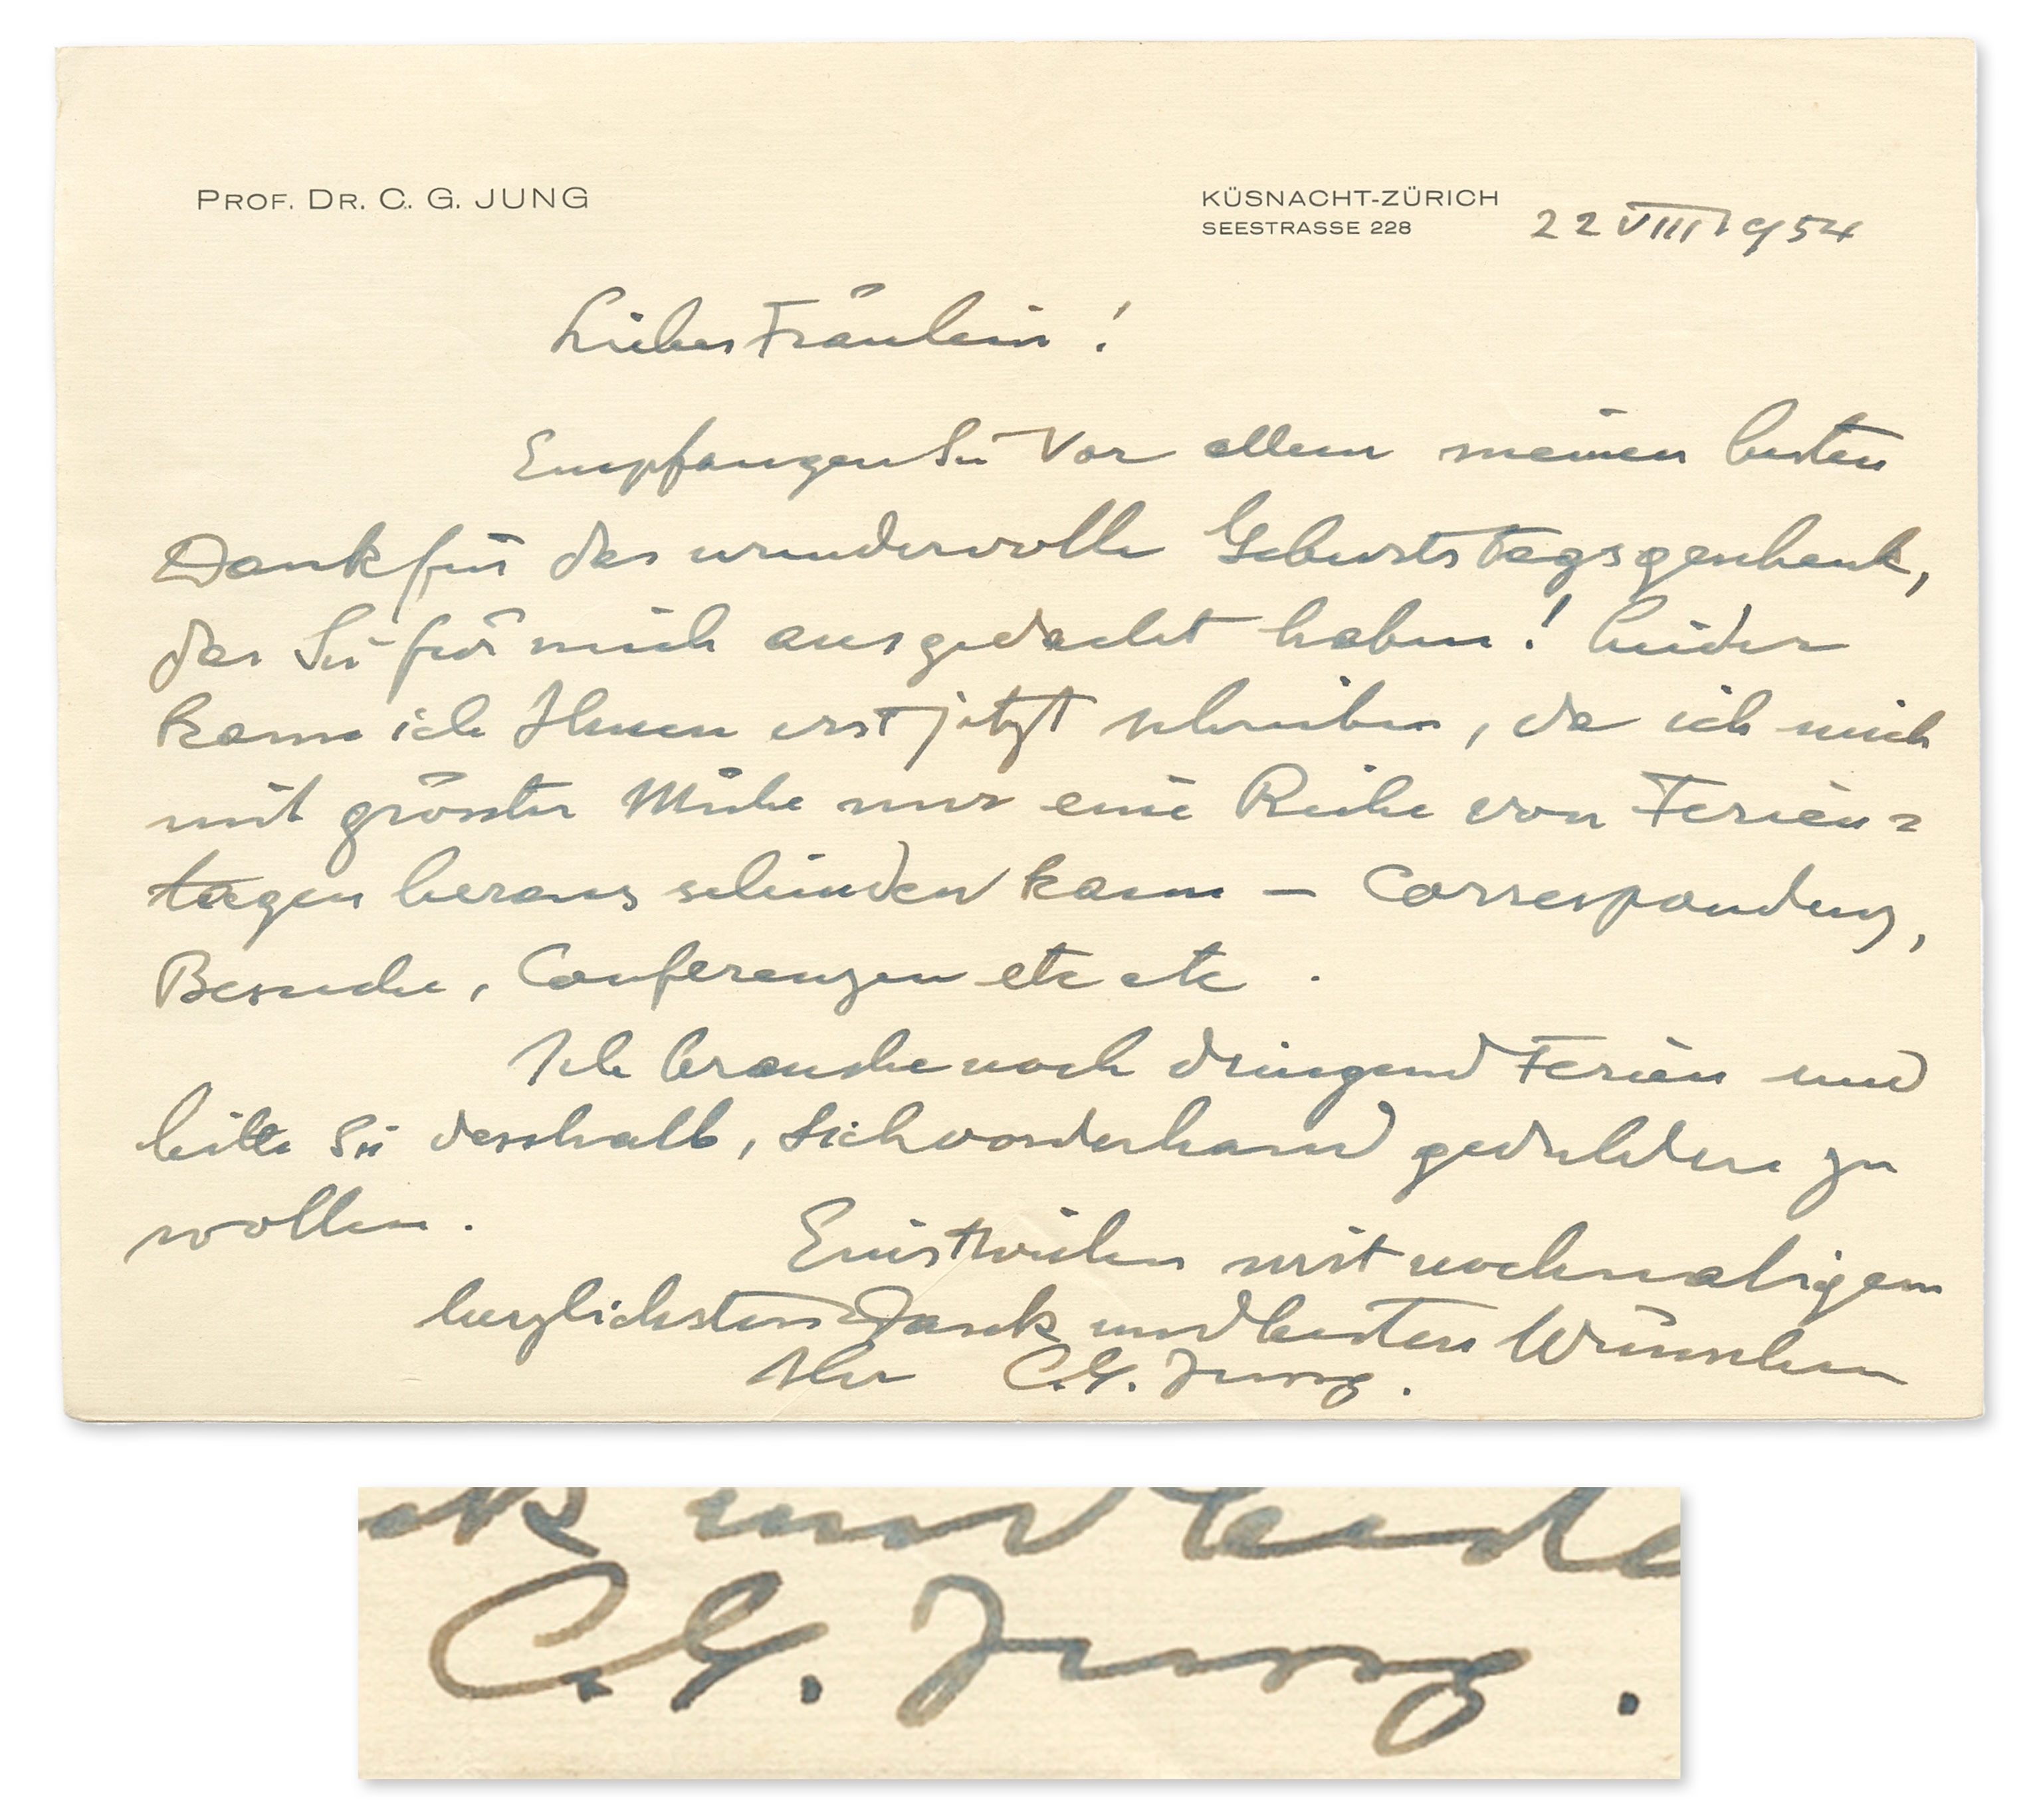 PROF. DR. C. G. JUNG
KÜSNACHT-ZÜRICH
SEESTRASSE 228
22 VIII 1954
Liebes Fräulein!
Empfangen Sie vor allem meinen besten
Dank für das wundervolle Geburtstagsgeschenk,
das Sie für mich ausgedacht haben! Leider
kann ich Ihnen erst jetzt schreiben, da ich mich
mit grösster Mühe nur eine Reihe von Ferien=
tagen herausschinden kann – Correspondenz,
Besuche, Conferenzen etc etc.
Ich brauche noch dringend Ferien und
bitte Sie desshalb, sich vorderhand gedulden zu
wollen.
Einstweilen mit nochmaligem
herzlichsten Dank und besten Wünschen
Ihr C. G. Jung.
ck und beste
C. G. Jung.